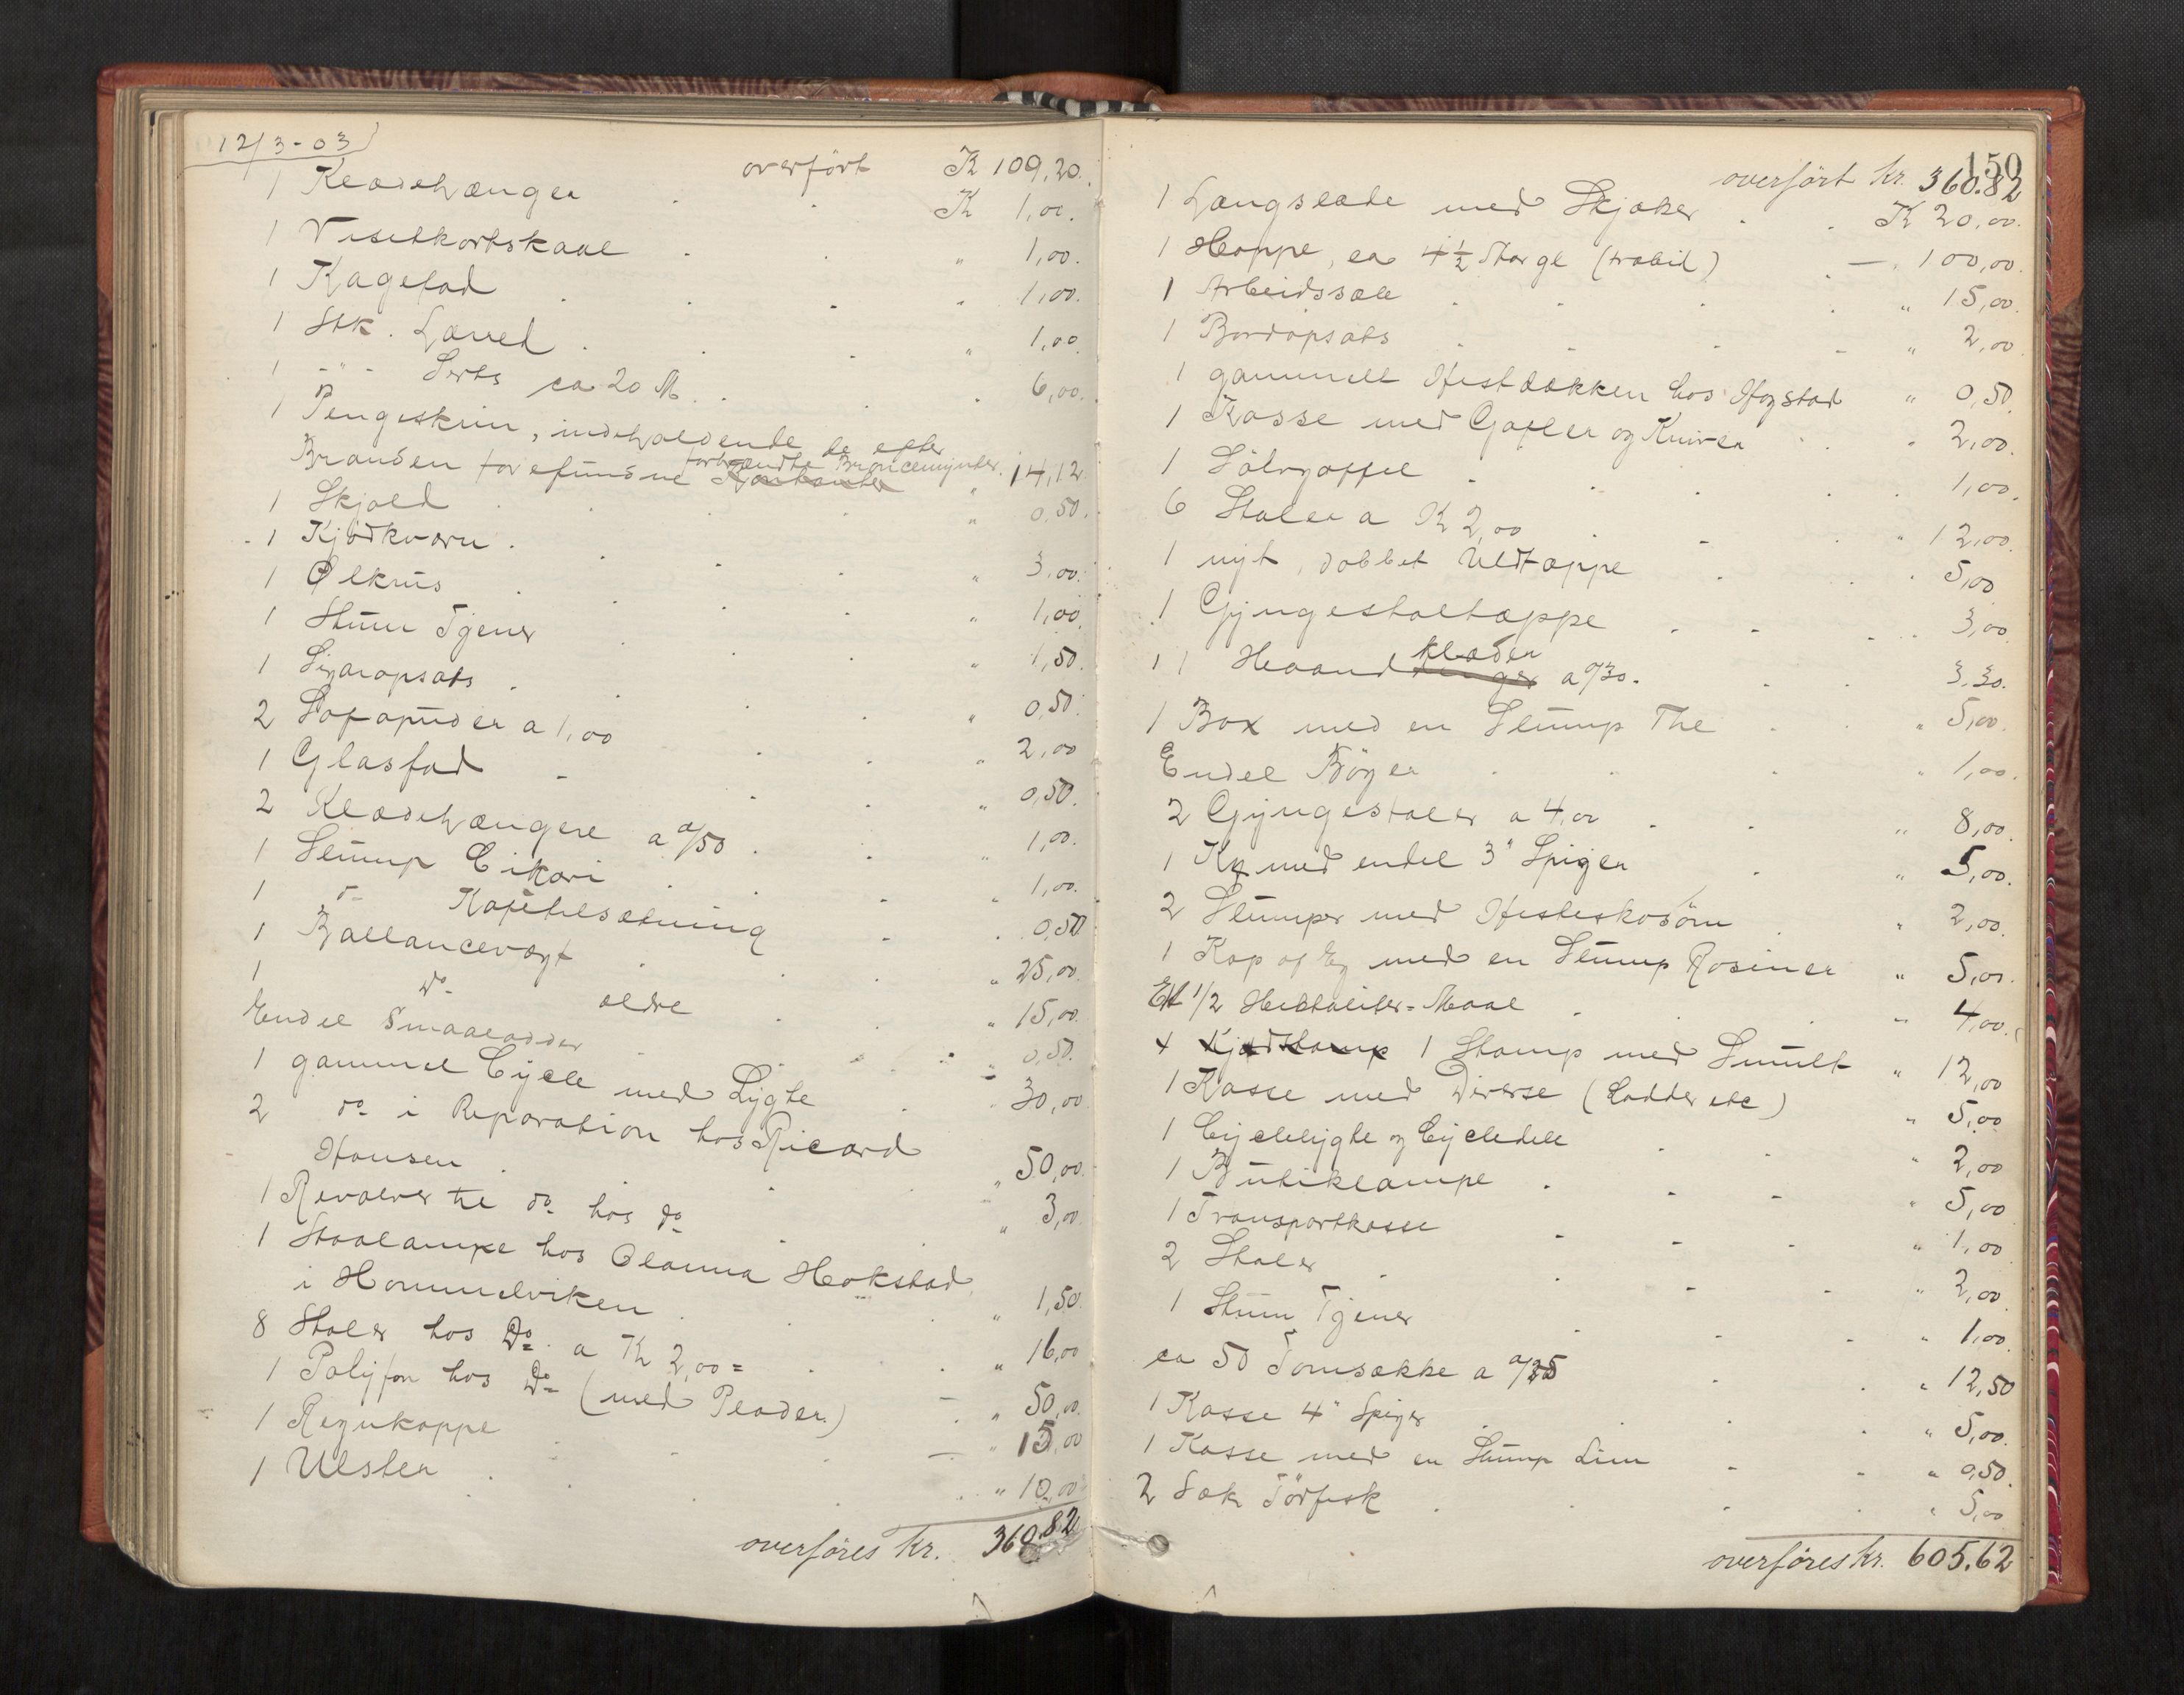 12/3-03
overført K 109,20.
1 Klædehænger . . K 1,00.
1 Visitkortskaal . . " 1,00.
1 Kagefad . . . " 1,00.
1 Stk. Lærred . . . " 1,00.
1 -"- Serts ca 20 M. . . . 6,00.
1 Pengeskrin, indeholdende de efter
Branden forefundne forbrændte Broncemynter " 14,12
1 Skjold . . . " 0,50.
1 Kjødkværn . . . . " 3,00.
1 Ølkrus . . . . " 1,00.
1 Stum Tjener . . " 1,50.
1 Sigaropsats . . . . " 0,50.
2 Sofapuder a 1,00 . . " 2,00
1 Glasfad - . . " 0,50.
2 Klædehængere a 0/50 . . " 1,00.
1 Slump Cikori . . . " 1,00.
1 do Kaffetilsætning - . 0,50
1 Ballancevægt . . . " 25,00.
1 do ældre . . " 15,00.
Endel Smaalodder . . . " 0,50.
1 gammel Cycle med Lygte . . 30,00
2 do i Reparation hos Ricard
Hansen . . . " 50,00.
1 Revolver til do hos do . " 3,00
1 Staalampe hos Olanna Hokstad
i Hommelviken . . " 1,50.
8 Stoler hos Do a K 2,00 = . . " 16,00
1 Polyfon hos Do (med Plader) - . " 50,00.
1 Regnkappe . . . - " 15,00
1 Ulster . . . . " 10,00
overføres kr. 360.82
150
overført kr. 360.82
1 Langslæde med Skjæker . . K 20,00.
1 Hoppe, ca 4 1/2 Aar gl (trolig) . - . 100,00.
1 Arbeidssæle . . . . " 15,00.
1 Bordopsats . - . - " 2,00
1 gammelt Hestdækken hos Hogstad " 0,50.
1 Kasse med Gafler og Kniver . " 2,00.
1 Sølvgaffel . . . . 1,00.
6 Stoler a K 2,00 . - . " 12,00.
1 nyt, dobbet Uldtæppe . . . 5,00
1 Gyngestoltæppe . . . . . 3,00
11 Haandklæder a 0/30. . . 3.30.
1 Box med en Slump The . . " 5,00.
Endel Bøger . . . " 1,00.
2 Gyngestoler a 4,00 . . " 8,00.
1 Kg med endel 3" Spiger . " 5,00.
2 Slumper med Hesteskosøm . " 2,00.
1 Kop af Eg med en Slump Rosiner " 5,00.
Et 1/2 Hectoliter=Maal . . " 4,00.
1 Stamp med Smult " 12,00
1 Kasse med Diverse (Lodder etc) " 5,00
1 Cyclelygte og Cycledele . . " 2,00
1 Butiklampe . . - " 5,00
1 Transportkasse - - - " 1,00
2 Stoler . - . " 2,00
1 Stum Tjener . . . " 1.00
ca 50 Tomsække a 0/25 . . " 12,50
1 Kasse 4" Spiger . . . " 5,00.
1 Kasse med en Slump Lim . - " 0,50.
2 Sæk Tørfisk . . - . " 5,00
overføres kr. 605.62